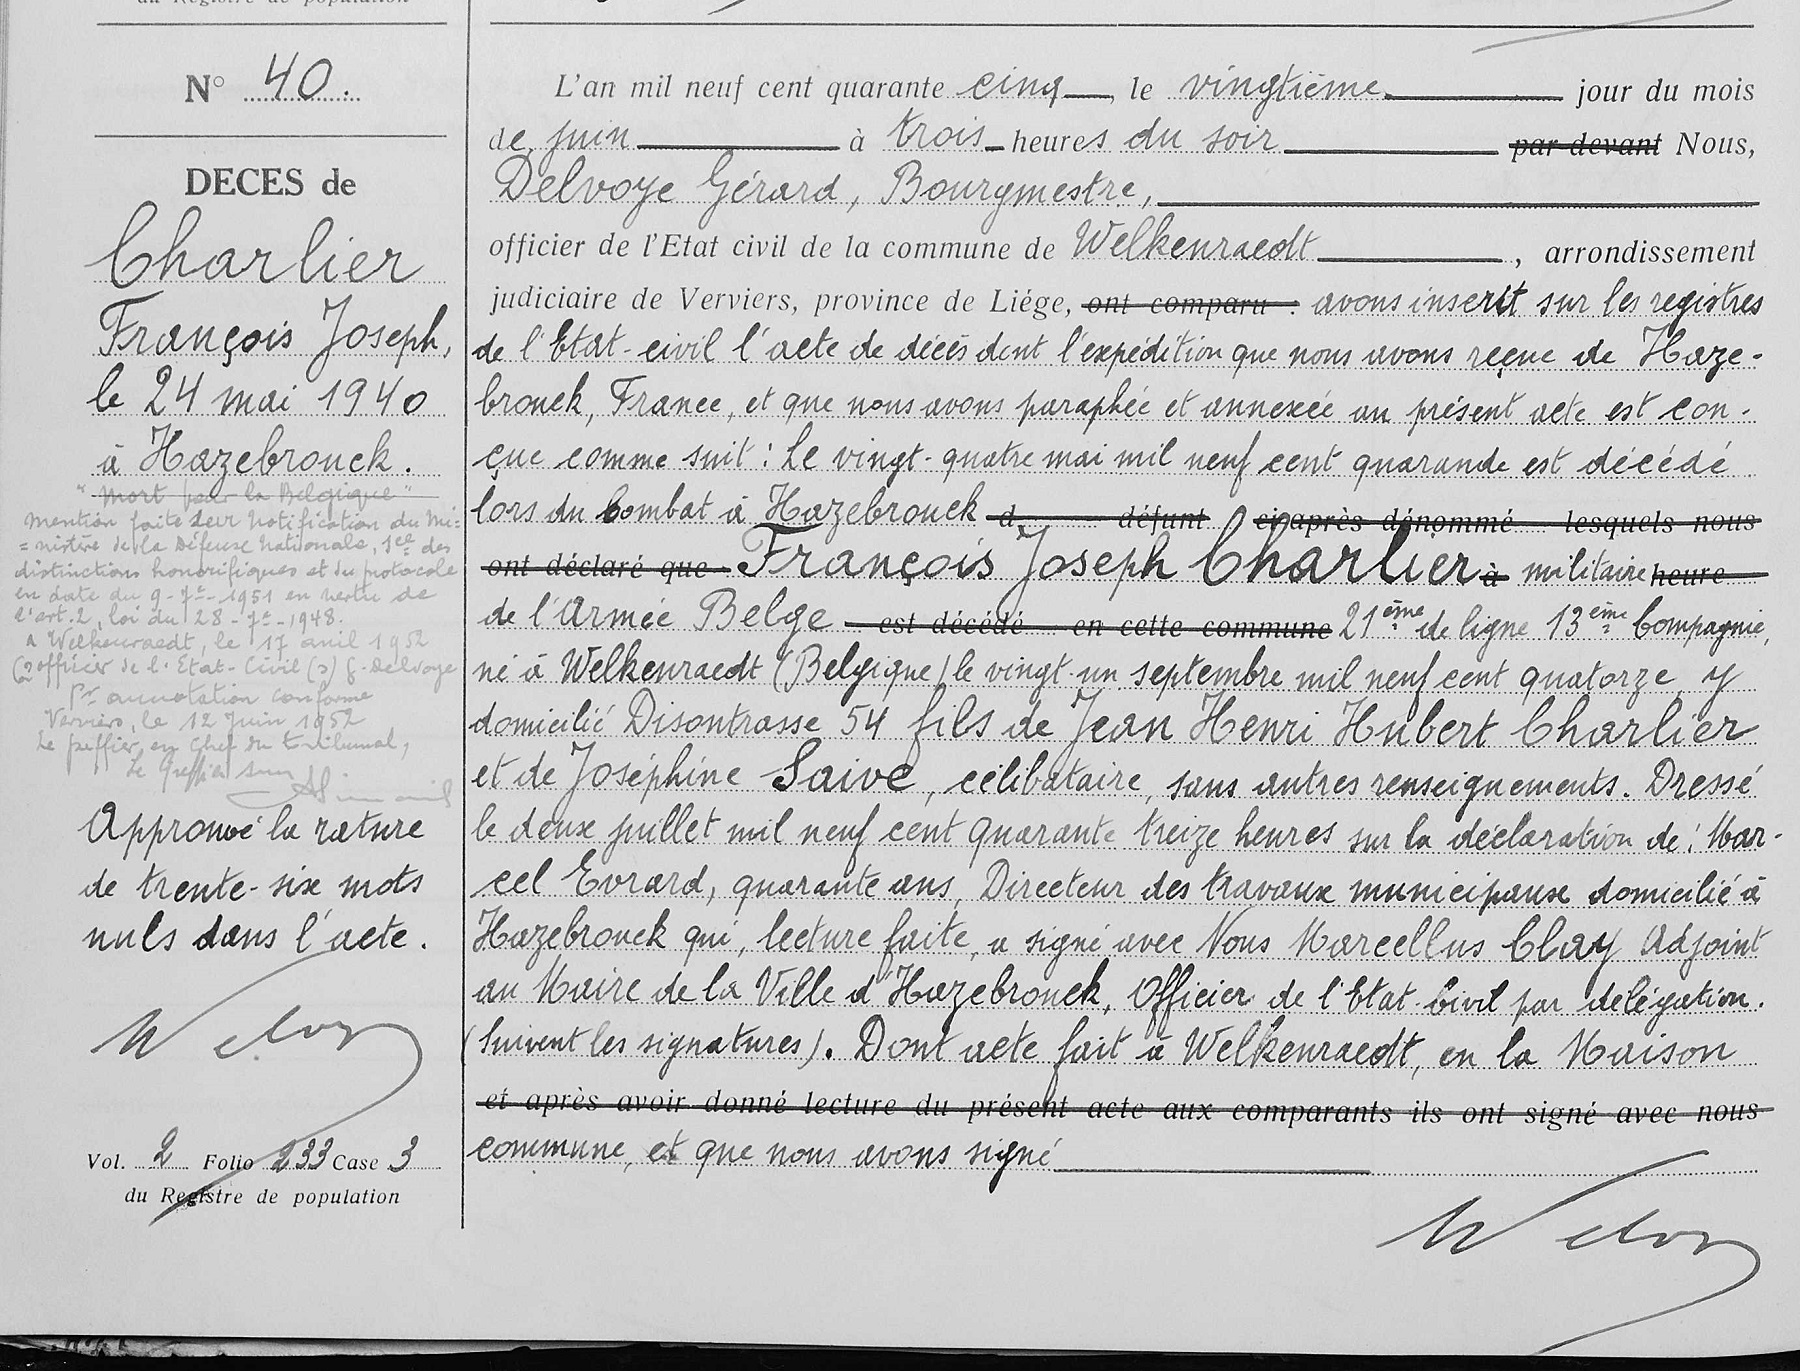 du Registre de population
N° 40.
DECES de
Charlier
François Joseph,
le 24 mai 1940
à Hazebrouck.
"Mort pour la Belgique"
Mention faite sur notification du Mi=
=nistère de la Défense Nationale, sce des
distinctions honorifiques et du protocole
en date du 9-7-1951 en vertu de
l'art. 2, loi du 28-7-1948.
A Welkenraedt, le 17 avril 1952
officier de l'Etat-Civil (s) G. Delvoye
Pr annotation conforme
Verviers, le 12 juin 1952
Le greffier en chef du tribunal,
Le Greffier
Approuvé la rature
de trente-six mots
nuls dans l'acte.
Vol. 2 Folio 233 Case 3
du Registre de population
L'an mil neuf cent quarante cinq, le vingtième jour du mois
de juin à trois heures du soir par devant Nous,
Delvoye Gérard, Bourgmestre,
officier de l'Etat civil de la commune de Welkenraedt, arrondissement
judiciaire de Verviers, province de Liége, ont comparu : avons inscrit sur les registres
de l'Etat-civil l'acte de décès dont l'expédition que nous avons reçue de Haze-
brouck, France, et que nous avons paraphée et annexée au présent acte est con-
çue comme suit : Le vingt-quatre mai mil neuf cent quarande est décédé
lors du Combat à Hazebrouck d défunt ci après dénommé lesquels nous
ont déclaré que François Joseph Charlier à militaire heure
de l'Armée Belge est décédé en cette commune 21ème de ligne 13ème Compagnie,
né à Welkenraedt (Belgique) le vingt-un septembre mil neuf cent quatorze y
domicilié Disontrasse 54 fils de Jean Henri Hubert Charlier
et de Joséphine Saive, célibataire, sans autres renseignements. Dressé
le deux juillet mil neuf cent quarante treize heures sur la déclaration de : Mar-
cel Evrard, quarante ans, Directeur des travaux municipaux domicilié à
Hazebrouck qui, lecture faite, a signé avec Nous Marcellus Clay Adjoint
au Maire de la Ville d'Hazebrouck, Officier de l'Etat-Civil par délégation.
(Suivent les signatures). Dont acte fait à Welkenraedt, en la Maison
et après avoir donné lecture du présent acte aux comparants ils ont signé avec nous
commune, et que nous avons signé